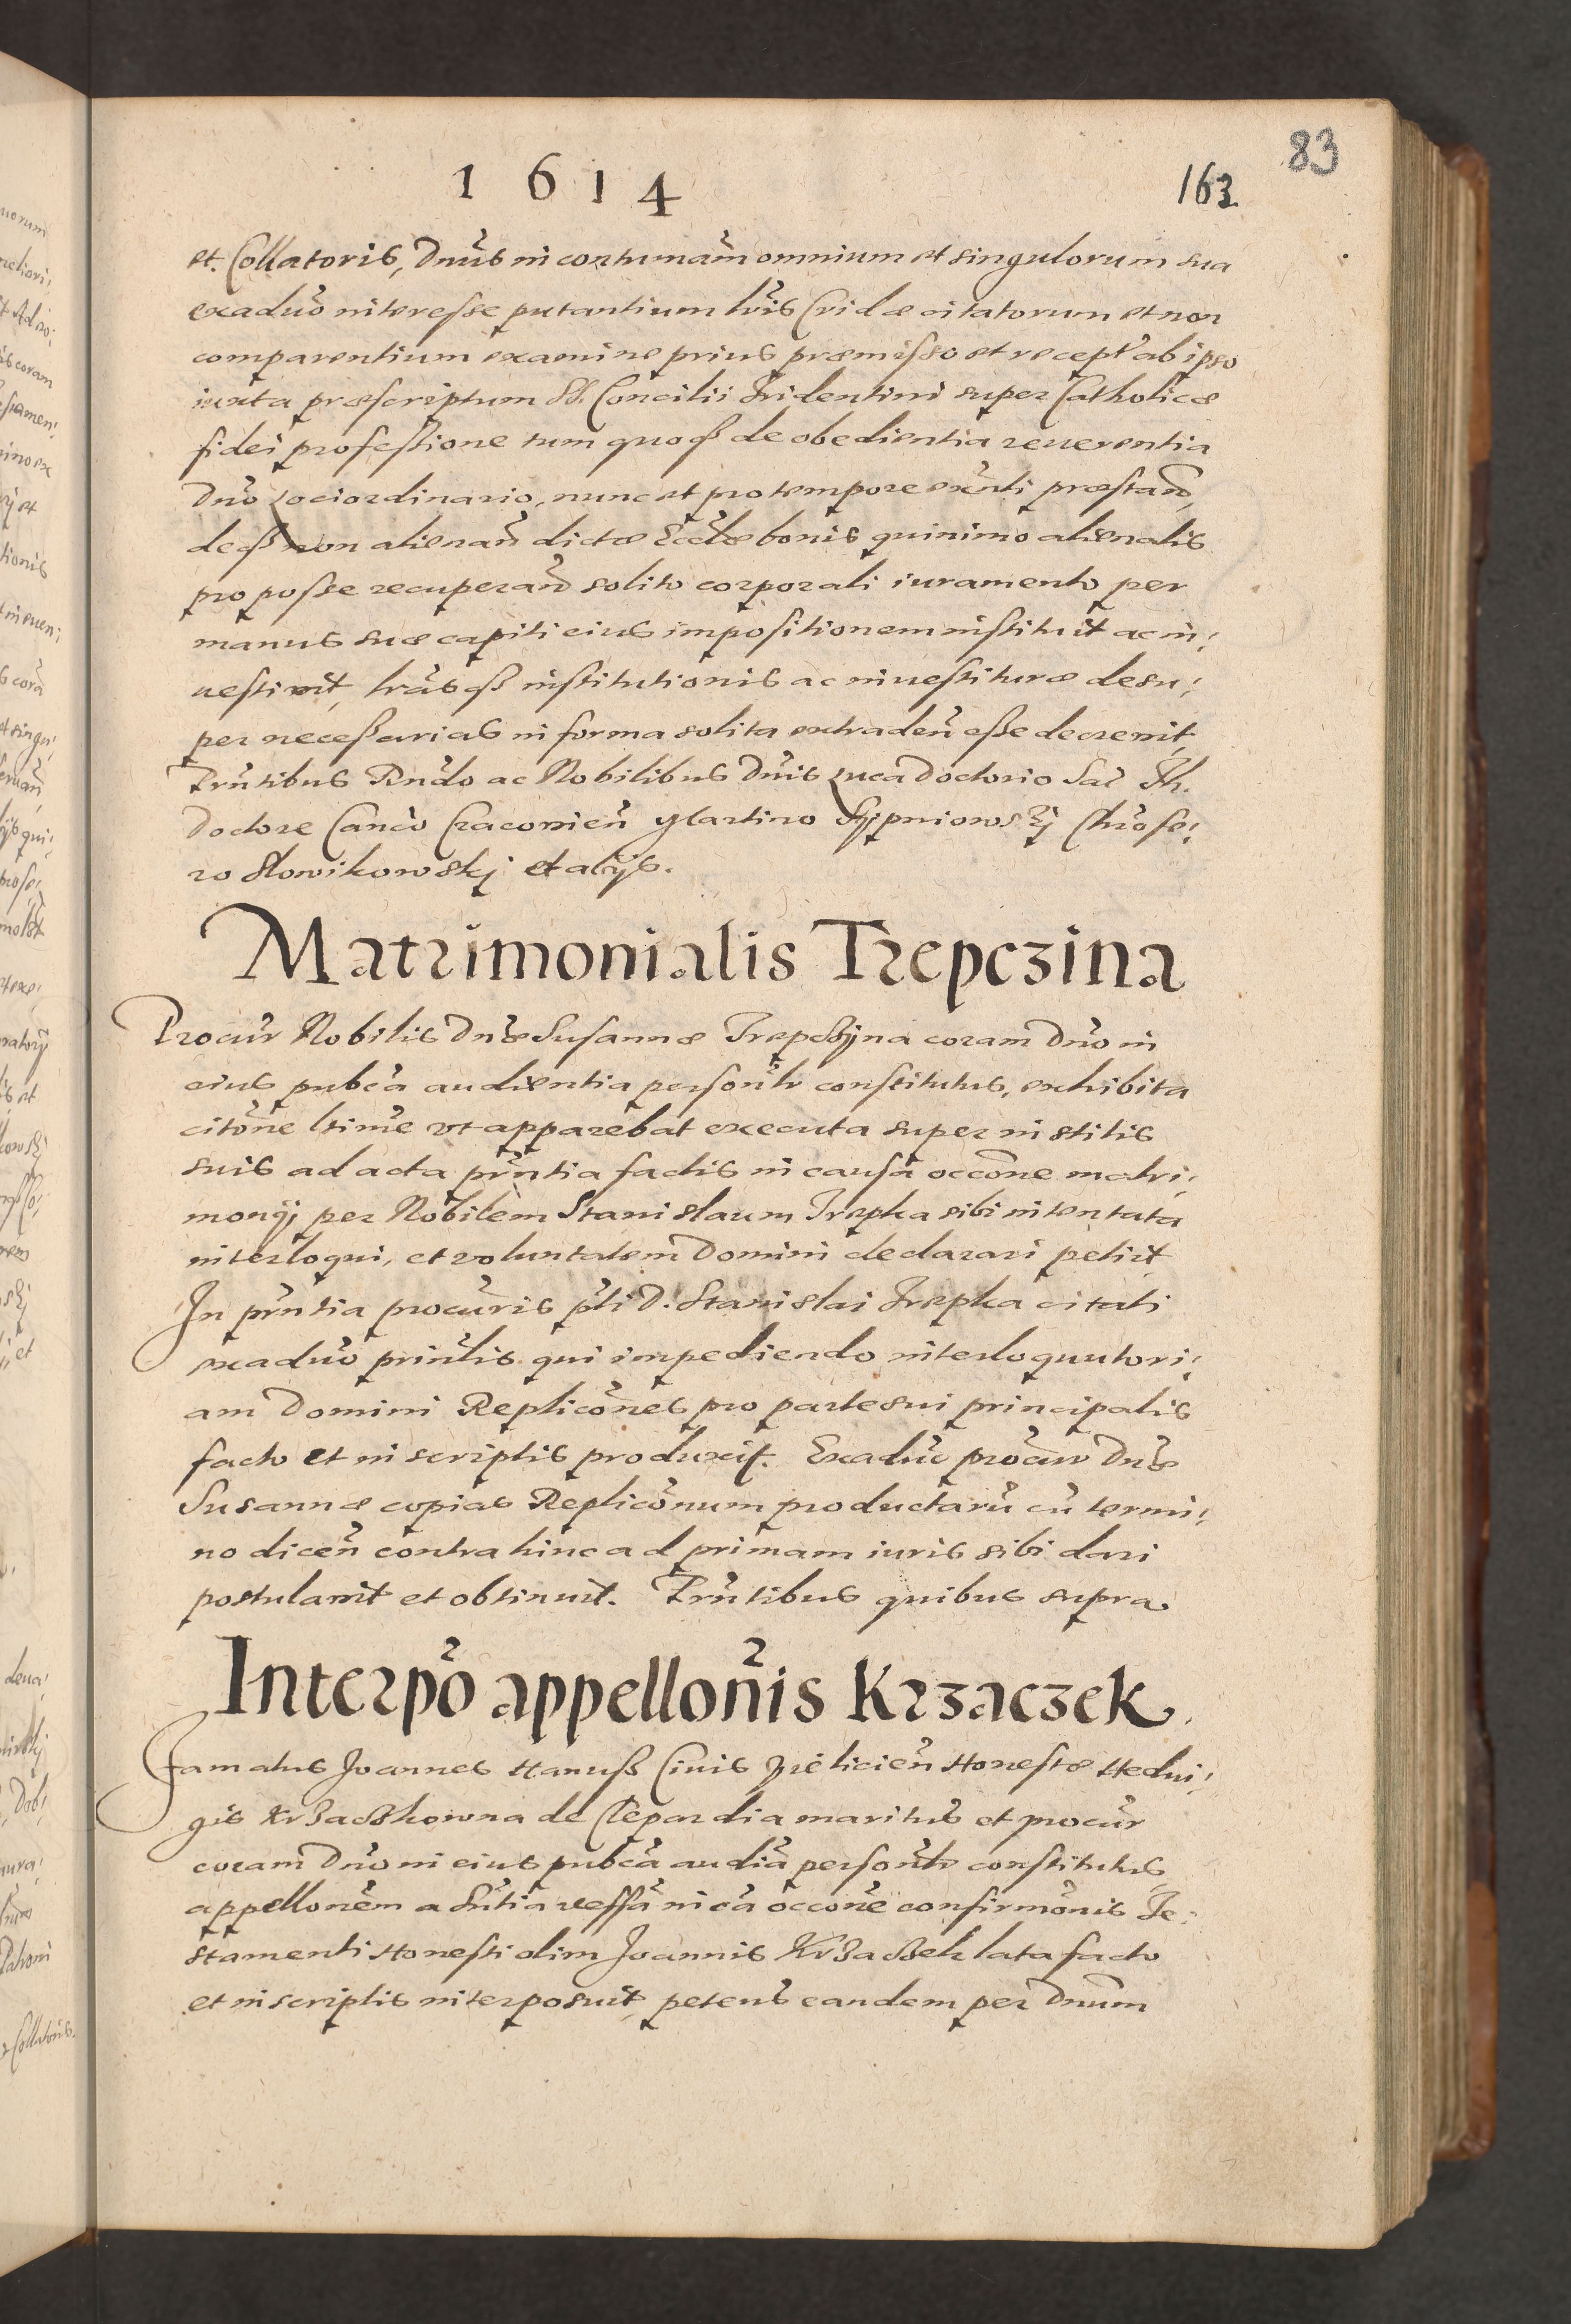 83
1614
163
et Collatoris, Dnūs in contumām omnium et singulorum sua
exaduō interesse putantium lrīs Cridæ citatorum et non
comparentium examine prius præmisso et recepto ab ipso
iuxta præscriptum SS. Concilii Tridentini super Catholicæ
fidei professione tum quoqȝ de obedientia reuerentia
Dnō Lociordinario, nunc et pro tempore exn̄ti præstand,
deqȝ non alienan̄ dictæ Ecclæ bonis quinimo alienatis
pro posse recuperand̄ solito corporali iuramento per
manus suæ capiti eius impositionem instituit ac in:
uestiuit, lrās qȝ institutionis ac inuestituræ desu:
per necessarias in forma solita extraden̄ esse decreuit,
Prn̄tibus Rndo ac Nobilibus Dnīs Luca Doctorio Sac Th.
Doctore Canco Cracouien̄ Martino Skipniowskj Chrōfe:
ro Slowikowskj et alijs.
Matrimonialis Trepczina
Procūr Nobilis Dnæ Susannæ Trepczyna coram Dnō in
eius pubcā audientia personlr constitutus, exhibita
citōne ltime vt apparebat executa super institis
suis ad acta prn̄tia factis in causa occōne matri:
monij per Nobilem Stanislaum Trepka sibi intentata
interloqui, et voluntatem Domini declarari petijt
In prn̄tia procūris pti D. Stanislai Trepka citati
exaduō prinlis qui impediendo interloquutori:
am Domini Replicōnes pro parte sui principalis
facto et in scriptis produxit. Exaduō procūr Dnæ
Susannæ copias Replicōnum productarū cū termi:
no dicen̄ contra hinc ad primam iuris sibi dari
postulauit et obtinuit. Prn̄tibus quibus supra
Interpō appellonīs Krzaczek
Famatus Joannes Hanuß Ciuis Vielicien̄ Honestæ Hedui:
gis Krzaczkowna de Clepardia maritus et procūr
coram Dnō in eius pubcā audiā personlr constitutus
appellonēm a Sn̄tia in cā occōne confirmōnis Te:
stamenti Honesti olim Joannis Krzaczek lata facto
et in scriptis interposuit, petens eandem per Dnum